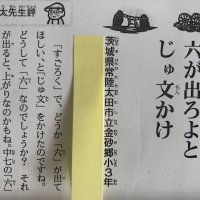 六が出ろよと
じゅ文かけ
茨城県常陸太田市立金砂郷小3年
太先生評
「すごろく」で、どうか「六」が出て
ほしい、と「じゅ文」をかけたのですね。
どうして「六」なのでしょうか？ それ
が出ると、上がりなのかもね。中七の「六